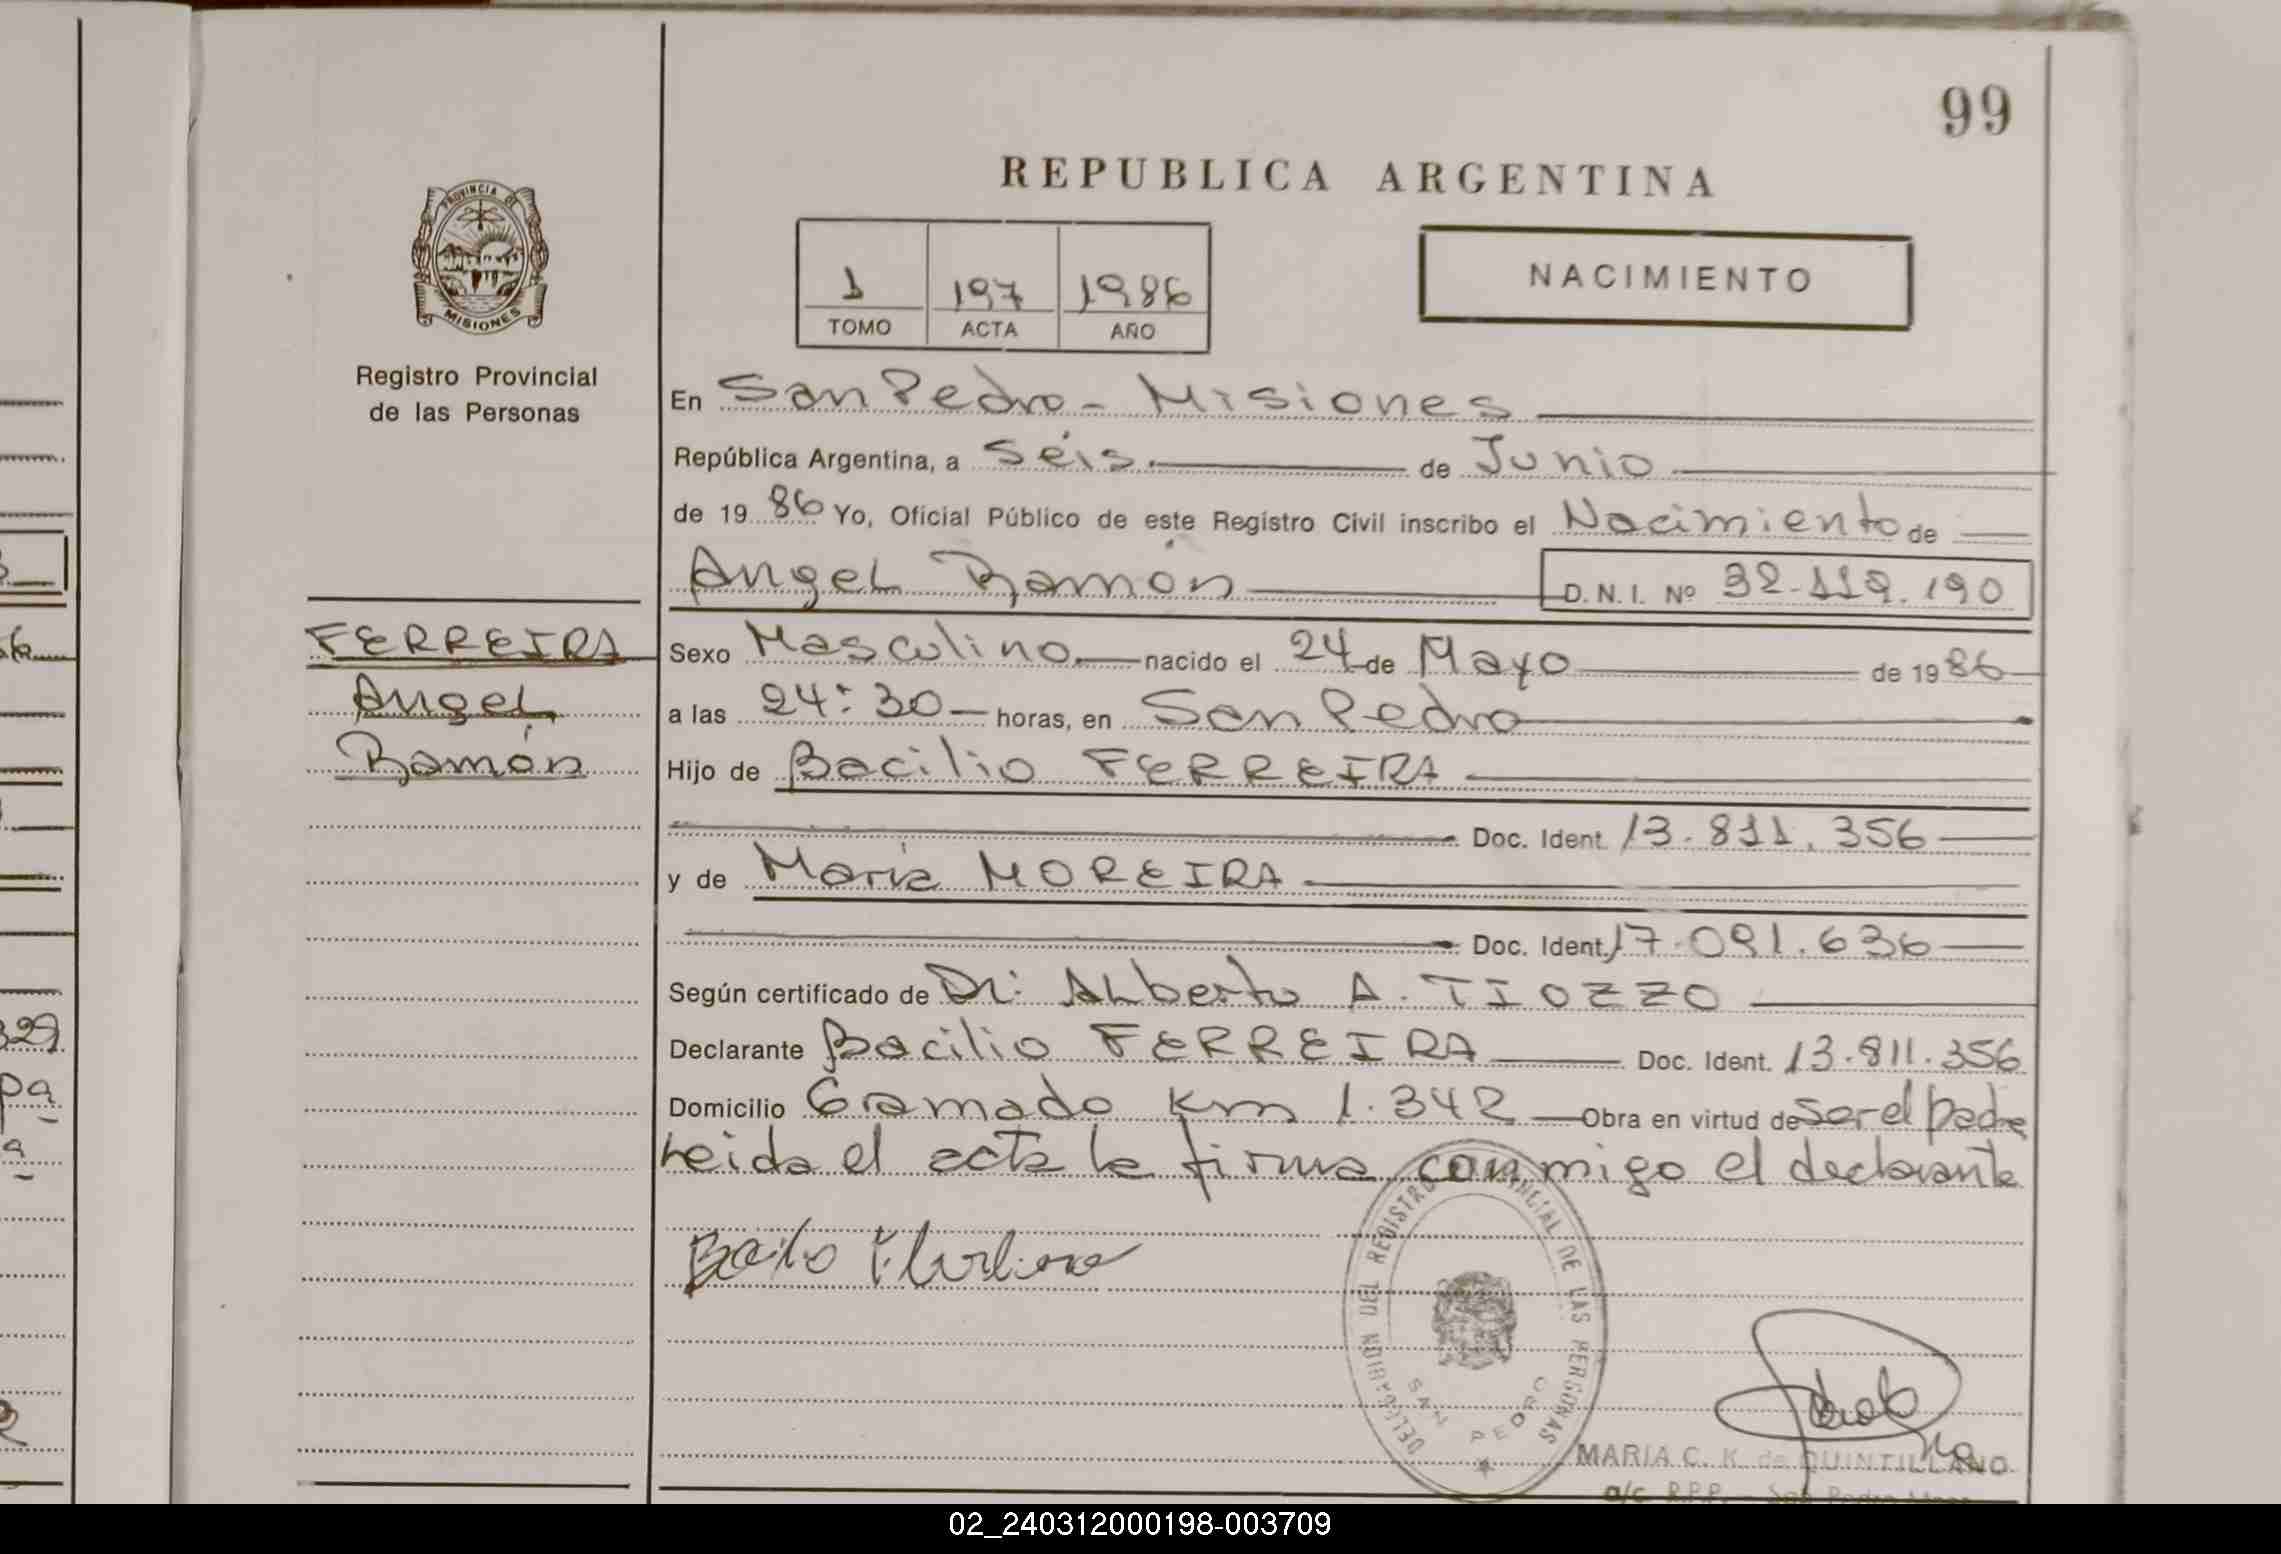 99
REPUBLICA ARGENTINA
PROVINCIA DE
MISIONES
Registro Provincial
de las Personas
1 197 1986
TOMO ACTA AÑO
NACIMIENTO
En San Pedro - Misiones
República Argentina, a Séis. de Junio
de 19 86 Yo, Oficial Público de este Registro Civil inscribo el Nacimiento de
Angel Ramón D.N.I. Nº 32.119.190
FERREIRA
Angel
Ramón
Sexo Masculino. nacido el 24 de Mayo de 19 86
a las 24:30 horas, en San Pedro
Hijo de Bacilio FERREIRA
Doc. Ident. 13.811.356
y de María MOREIRA
Doc. Ident. 17.091.636
Según certificado de Dr: Alberto A. TIOZZO
Declarante Bacilio FERREIRA Doc. Ident. 13.811.356
Domicilio Gramado Km 1.342 Obra en virtud de ser el padre
Leida el acta la firma conmigo el declarante
DELEGACION DEL REGISTRO PROVINCIAL DE LAS PERSONAS
SAN PEDRO
MARIA C. K. de QUINTILLANO
a/c R.P.P. - San Pedro
329
pa
a
02_240312000198-003709